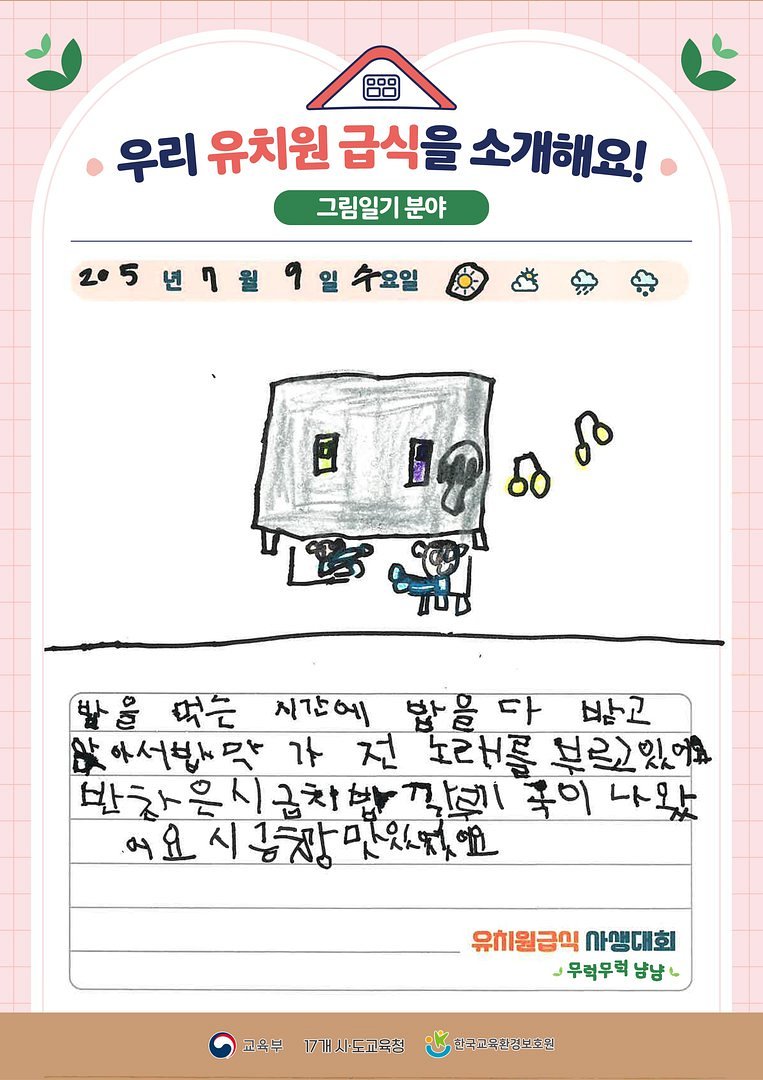 우리 유치원 급식을 소개해요!
그림일기 분야
205 년 7 월 9 일 수요일
밥을 먹는 시간에 밥을 다 받고
앉아서 밥 먹 가 전 노래를 부르고있어요
반찬은 시금치 밥 깍뚜기 국이 나왔
어요 시금창 맛있었어요
유치원급식 사생대회
무럭무럭 냠냠
교육부 17개 시·도교육청 한국교육환경보호원